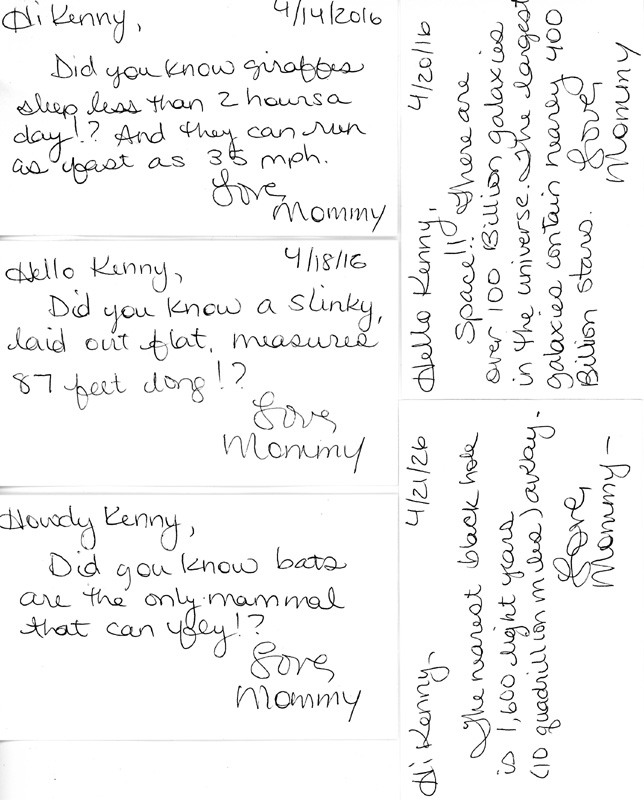 Hi Kenny, 4/14/2016
Did you know giraffes
sleep less than 2 hours a
day!? And they can run
as fast as 35 mph.
Love,
Mommy
Hello Kenny, 4/18/16
Did you know a slinky,
laid out flat, measures
87 feet long!?
Love,
Mommy
Howdy Kenny,
Did you know bats
are the only mammal
that can fly!?
Love,
Mommy
Hello Kenny, 4/20/16
Space!! There are
over 100 Billion galaxies
in the universe. The largest
galaxies contain nearly 400
Billion stars.
Love,
Mommy
Hi Kenny, 4/21/26
The nearest black hole
is 1,600 light years
(10 quadrillion miles) away.
Love,
Mommy